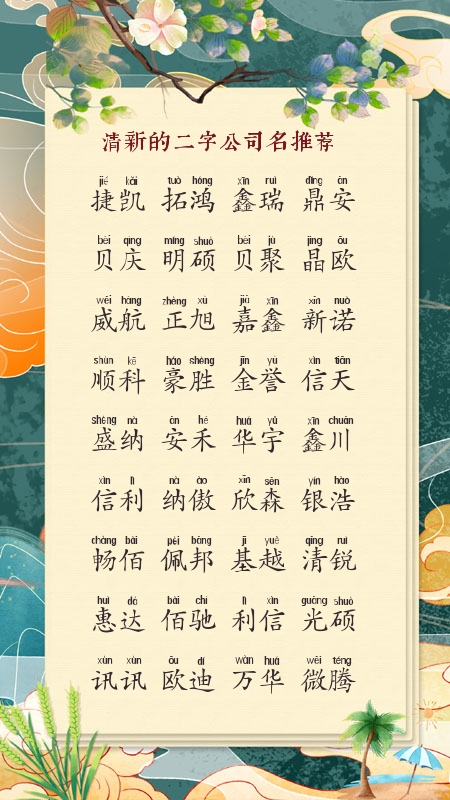 清新的二字公司名推荐
jié kǎi tuò hóng xīn ruì dǐng ān
捷凯 拓鸿 鑫瑞 鼎安
bèi qìng míng shuò bèi jù jīng ōu
贝庆 明硕 贝聚 晶欧
wēi háng zhèng xù jiā xīn xīn nuò
威航 正旭 嘉鑫 新诺
shùn kē háo shèng jīn yù xìn tiān
顺科 豪胜 金誉 信天
shèng nà ān hé huá yǔ xīn chuān
盛纳 安禾 华宇 鑫川
xìn lì nà ào xīn sēn yín hào
信利 纳傲 欣森 银浩
chàng bǎi pèi bāng jī yuè qīng ruì
畅佰 佩邦 基越 清锐
huì dá bǎi chí lì xìn guāng shuò
惠达 佰驰 利信 光硕
xùn xùn ōu dí wàn huá wēi téng
讯讯 欧迪 万华 微腾